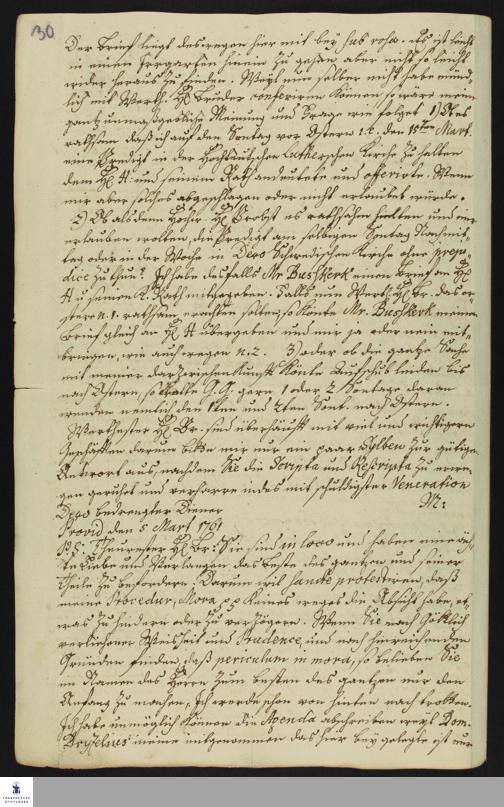 30
Der Brief liegt desweegen hier mit bey sub rosa. Es ist leicht
in einen Irrgarten hinein zu gehen aber nicht so leicht
wieder heraus zu finden. Weyl nun selber nicht habe münd-
lich mit Werth. H Bruder conferiren können so wäre meine
ganz unmaasgebliche Meinung und Frage wie folget 1) Ob es
rathsam daß ich auf den Sontag vor Ostern i.e. den 15ten Mart.
eine Predigt in der Hochteutschen Lutherschen Kirche zu halten
dem H H und seinem Rath andeutete und offerirte. Wenn
mir aber solches abgeschlagen oder nicht erlaubet würde.
2) Ob als dem Hochw. H Probst es rathsam hielten und mir
erlauben wolten, die Predigt am selbigen Sontag Nachmit-
tag oder in der Woche in Dero Schwedischen Kirche ohne præju-
dice zu thun? Ich habe desfalls Mr. Buskerk einen Brief an H
H u seinen K. Rath mitgegeben. Falls nun Werth. H Br. das er-
stere n. 1. rathsam erachten solten, so könte Mr. Buskerk meinen
Brief gleich an H H übergeben und mir ja oder nein mit-
bringen, wie auch wegen n. 2. 3) oder ob die gantze Sache
mit meiner dazwischenkunft könte Aufschub leiden bis
nach Ostern, so wolte G. G. gern 1 oder 2 Sontage daran
wenden nemlich den 1ten und 2ten Sont. nach Ostern.
Werthester H Br. sind überhäuft mit viel und wichtigern
Geschäften darum bitte mir nur ein paar Sylben zur gütigen
Antwort aus, nachdem Sie die Scripta und Rescripta zu erwe-
gen geruhet und verharre indes mit schuldigster Veneration
Dero bedrengter Diener M:
Provid den 5 Mart 1761
P. S. Theurester H Br: Sie sind in loco und haben eine
Liebe und Verlangen das beste des gantzen und seiner
Theile zu befördern: Darum wil sancte protestiren, daß
meine Procedur, Mora pp keines weges die Absicht habe, et-
was zu hindern oder zu verzögern. Wenn Sie nach Göttlich
verliehener Weisheit und Prudence, und nach hinreichenden
Gründen finden, daß periculum in mora, so belieben Sie
im Namen des Herrn zum besten des gantzen nur den
Anfang zu machen, Ich werde schon von hinten nach trotten.
Ich habe unmöglich können die Agenda abschreiben weyl Dom.
meine mitgenommen das hier bey gelegte ist nur
FRANCKESCHE STIFTUNGEN